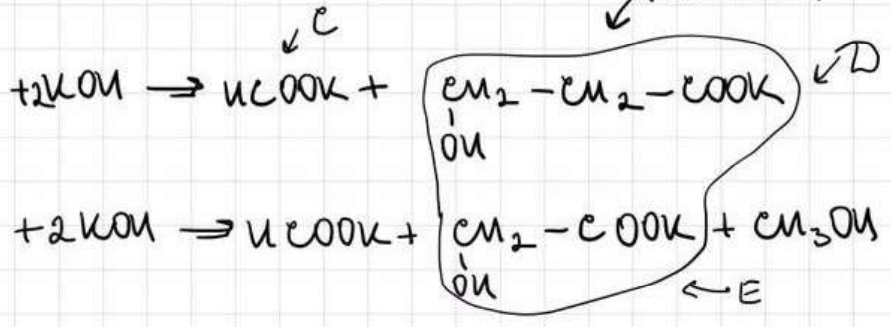 C
+2KOH → HCOOK + CH₂-CH₂-COOK D
OH
+2KOH → HCOOK + CH₂-COOK + CH₃OH
OH
E